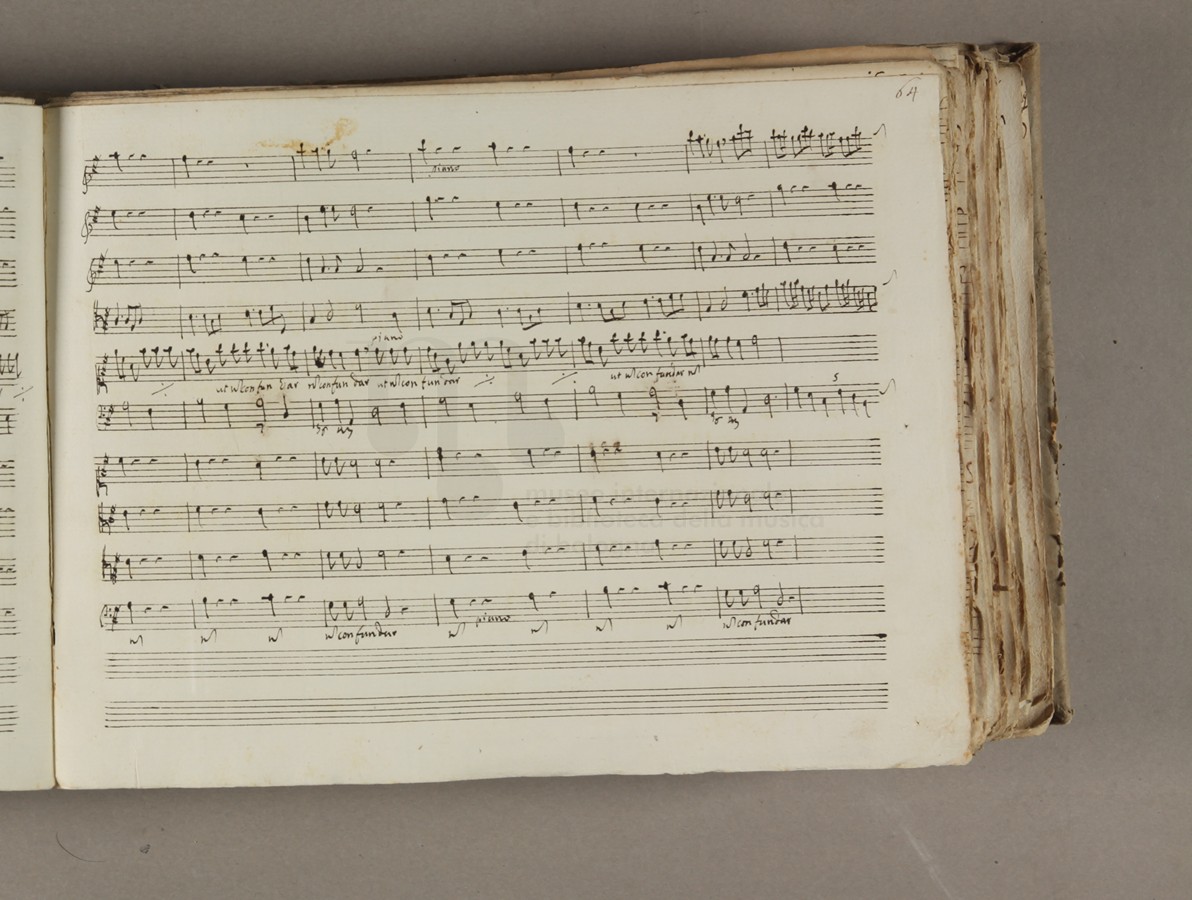 64
piano
piano
ut nō confundar nō confundar ut nō confundar
ut nō confundar nō
5
nō nō nō nō confundar nō piano nō nō nō nō confundar
museo internazionale
e biblioteca della musica
di bologna